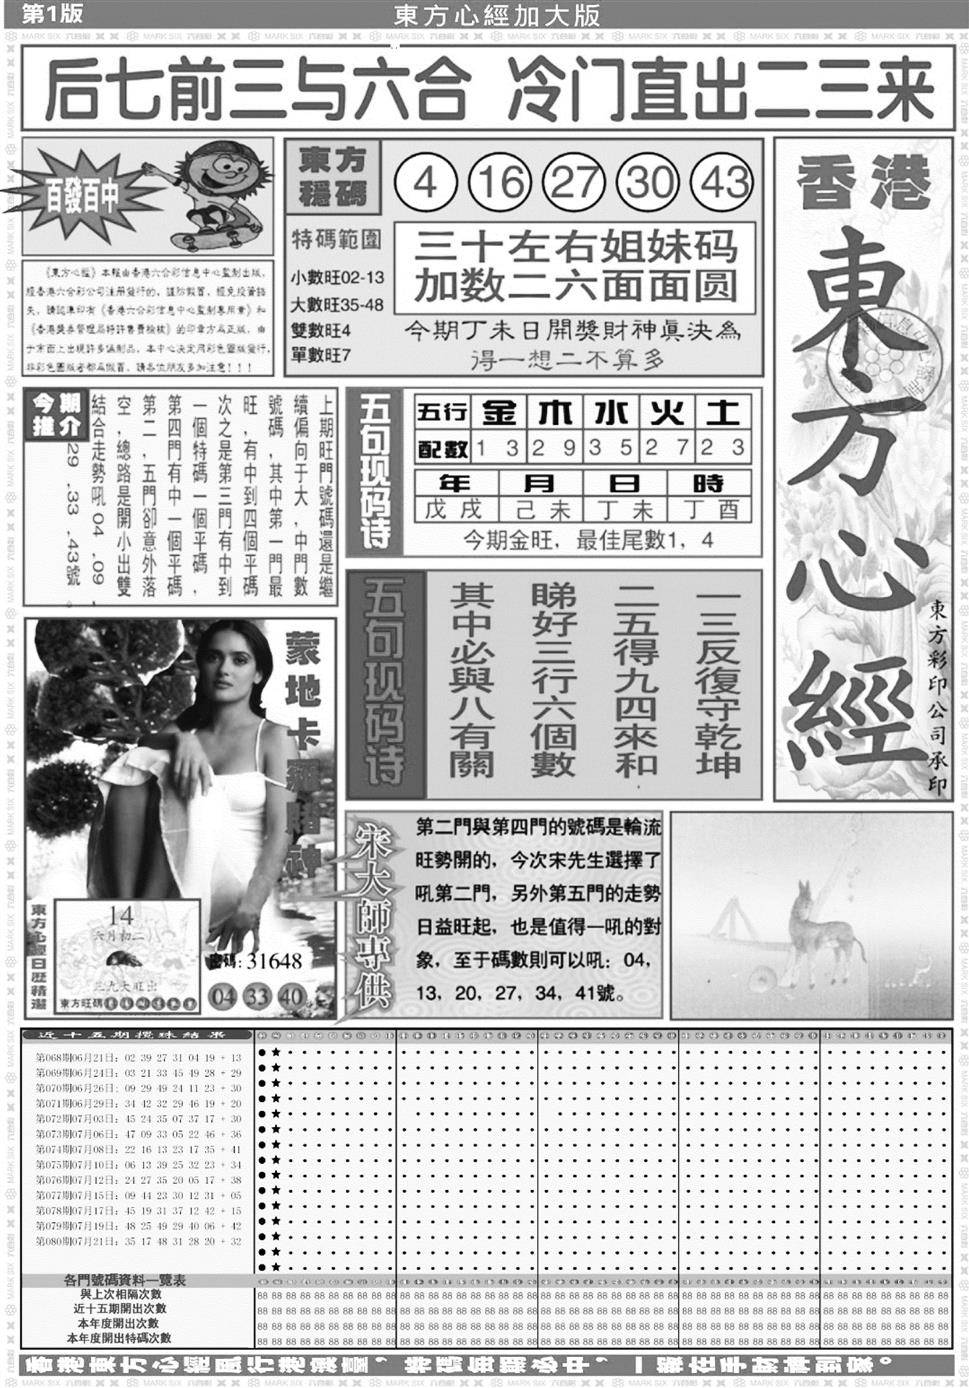 第1版
東方心經加大版
后七前三与六合 冷门直出二三来
百發百中
《東方心經》本報由香港六合彩信息中心監制出版，
經香港六合彩公司注册發行的，謹防假冒，經免投資錯
失，請認準印有《香港六合彩信息中心監制專用章》和
《香港獎券管理局特許書費檢核》的印章方爲正版，由
于市面上出現許多僞制品，本中心決定用彩色圖版發行，
非彩色圖版者都爲假冒，請各位朋友多加注意！！！
東方
穩碼
4 16 27 30 43
特碼範圍
小數旺02-13
大數旺35-48
雙數旺4
單數旺7
三十左右姐妹码
加数二六面面圆
今期丁未日開獎財神眞決為
得一想二不算多
香港
東方心經
東方彩印公司承印
今期
推介
上期旺門號碼還是繼
續偏向于大，中門數
號碼，其中第一門最
旺，有中到四個平碼
次之是第三門有中到
一個特碼一個平碼，
第四門有中一個平碼
第二，五門卻意外落
空，總路是開小出雙
結合走勢吼04，09，
29，33，43號。
五句现码诗
五行 金 木 水 火 土
配數 1 3 2 9 3 5 2 7 2 3
年 月 日 時
戊戌 己未 丁未 丁酉
今期金旺，最佳尾數1，4
五句现码诗
一三反復守乾坤
二五得九四來和
睇好三行六個數
其中必與八有關
蒙地卡羅賭神
東方心經日歷精選
14
六月初二
三九大旺出
東方旺碼
密碼：31648
04 33 40
宋大師專供
第二門與第四門的號碼是輪流
旺勢開的，今次宋先生選擇了
吼第二門，另外第五門的走勢
日益旺起，也是值得一吼的對
象，至于碼數則可以吼：04，
13，20，27，34，41號。
近十五期攪珠結果
第068期06月21日：02 39 27 31 04 19 + 13
第069期06月24日：03 21 33 45 49 28 + 29
第070期06月26日：09 29 49 24 11 23 + 30
第071期06月29日：34 42 32 29 46 19 + 20
第072期07月03日：45 24 35 07 37 17 + 30
第073期07月06日：47 09 33 05 22 46 + 36
第074期07月08日：22 16 13 23 17 35 + 41
第075期07月10日：06 13 39 25 32 23 + 34
第076期07月12日：24 27 35 20 05 17 + 38
第077期07月15日：09 44 23 30 12 31 + 05
第078期07月17日：45 19 31 37 12 42 + 15
第079期07月19日：48 25 49 29 40 06 + 42
第080期07月21日：35 17 48 31 28 20 + 32
各門號碼資料一覽表
與上次相隔次數
近十五期開出次數
本年度開出次數
本年度開出特碼次數
香港東方心經風行港澳臺，特碼每期必中，一版在手財神到家。